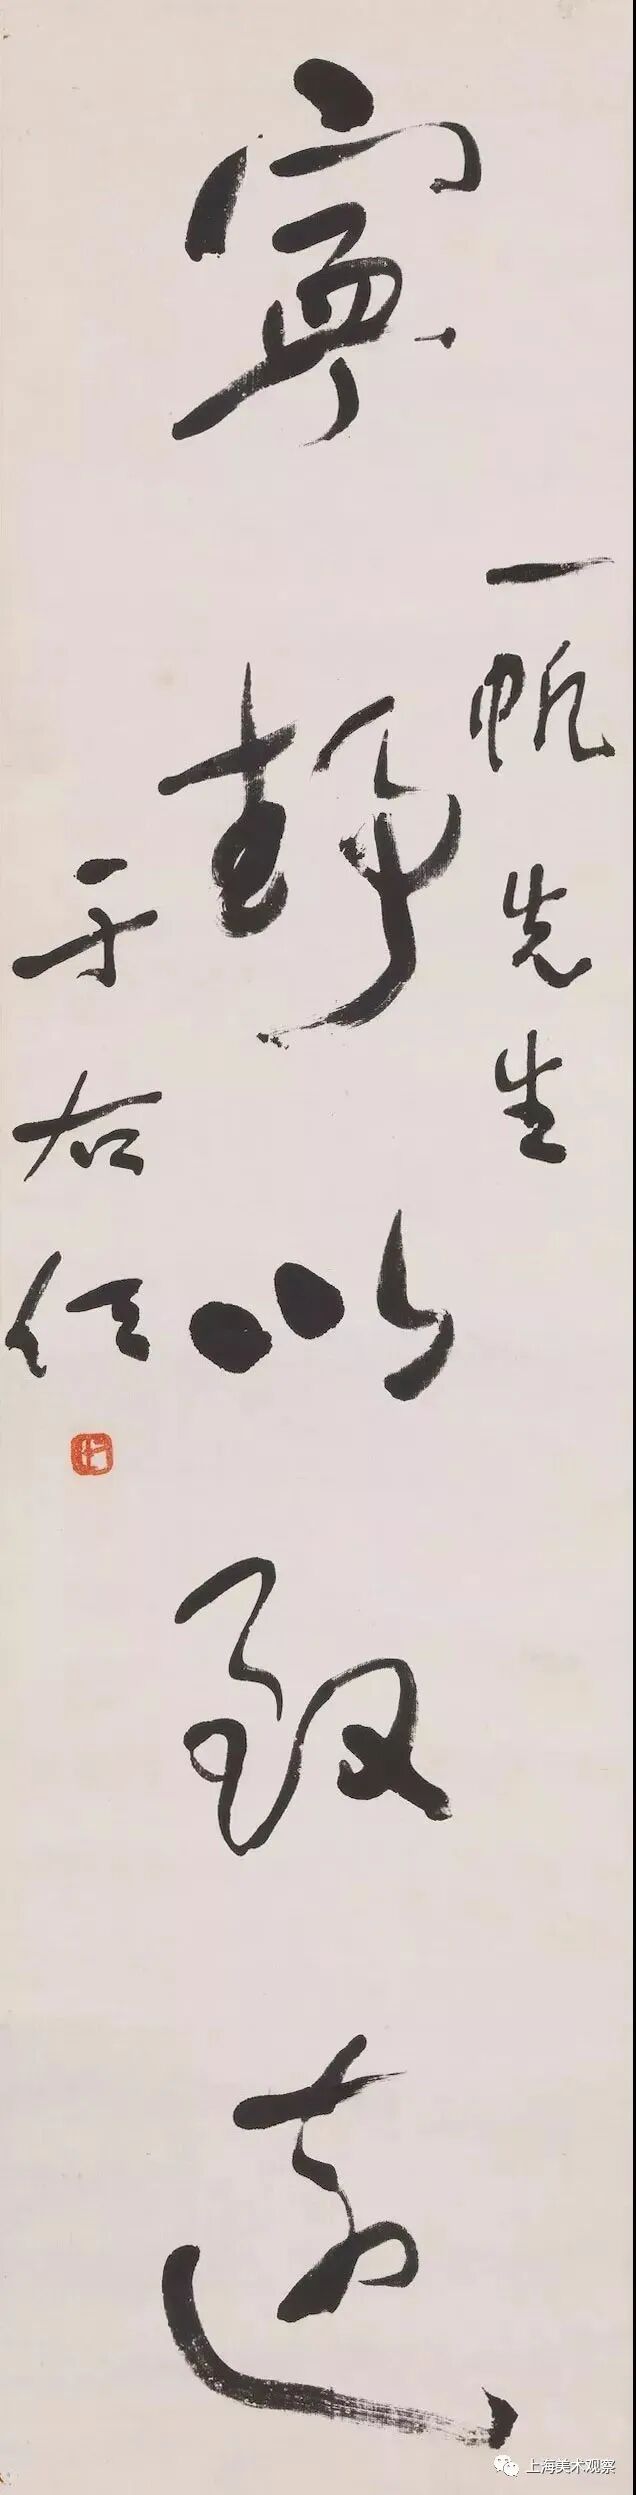 一帆先生
寧静以致遠
于右任
上海美术观察